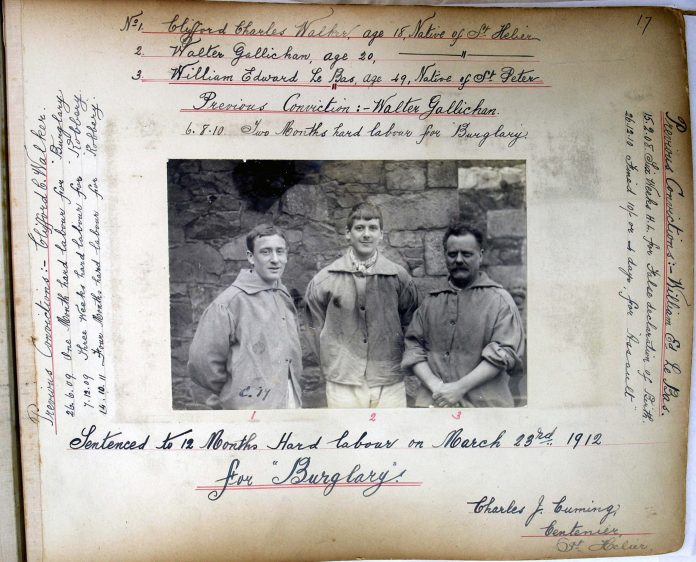 17
No 1. Clifford Charles Walker, age 18, Native of St Helier
2. Walter Gallichan, age 20, — " —
3. William Edward Le Bas, age 49, Native of St Peter
Previous Conviction :- Walter Gallichan.
6.8.10. Two Months hard labour for Burglary.
Previous Convictions :- Clifford C. Walker.
26.6.09. One Month hard labour for Burglary
7.12.09 Three Weeks hard labour for Robbery.
14.10.11 Four Months hard labour for Robbery
Previous Convictions :- William Ed Le Bas.
15.2.08. Six Weeks H.L. for False declaration of Birth.
26.12.10 Fined 10/- or 4 days, for "Assault"
1 2 3
Sentenced to 12 Months Hard labour on March 23rd 1912
for "Burglary".
Charles J. Cuming,
Centenier,
St Helier.